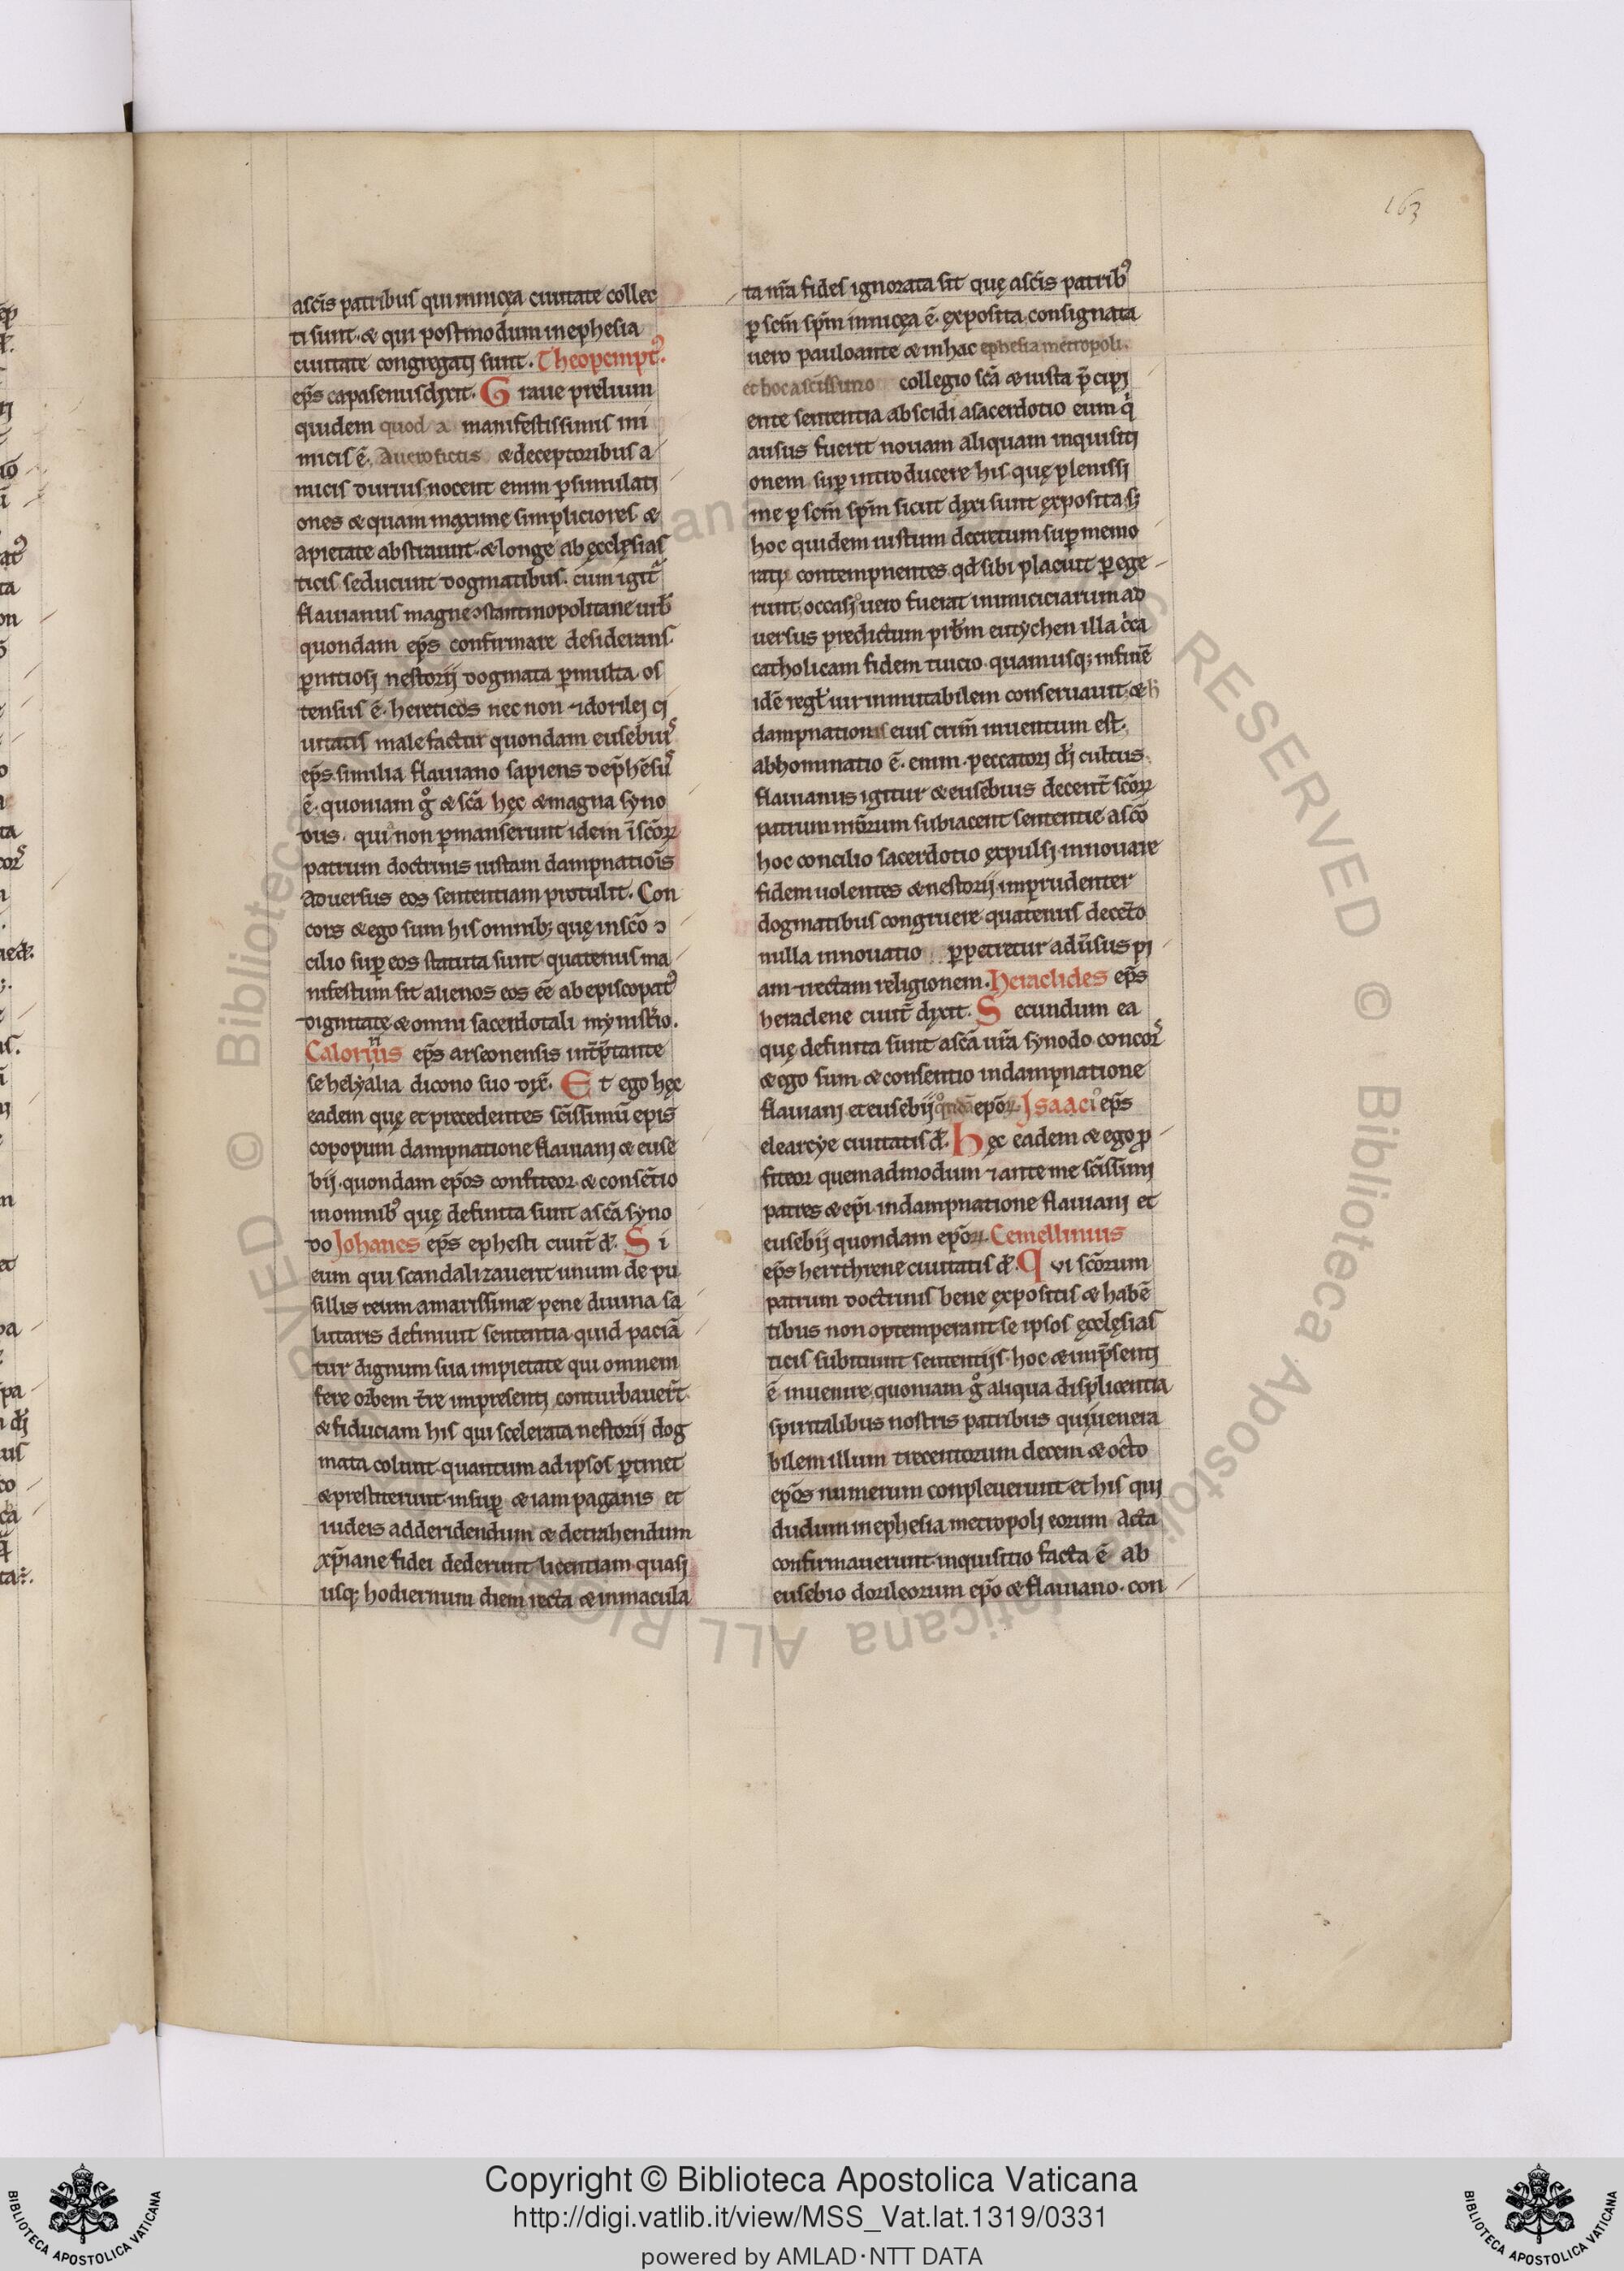 163
ascīs patribus qui in nicęa ciuitate collec
ti sunt · & qui postmodum in ephesia
ciuitate congregati sunt . Theopempt᷒.
ep̄s capasenus dixit . Graue prelium
quidem quod a manifestissimis ini
micis ē . A uero fictis & deceptoribus a
micis durius nocent enim ꝑ simulati
ones & quam maxime simpliciores &
a pietate abstrauunt · & longe ab ęcclęsias
ticis seducunt dogmatibus . cum igit᷑
flauianus magne ꝯstantinopolitane urb̄
quondam ep̄s confirmare desiderans
ꝑnitiosi nestorij dogmata ꝑ multa · os
tensus ē · hereticos nec non ⁊ dorilei ci
uitatis male factur quondam eusebius
ep̄s similia flauiano sapiens dep̄hēsus
ē · quoniam gͦ & scā hęc & magna syno
dus · qui non ꝑmanserunt idem ī scōꝝ
patrum doctrinis iustam dampnatiōis
aduersus eos sententiam protulit . Con
cors & ego sum his omnibꝫ quę in scō ꝯ
cilio suꝑ eos statuta sunt · quatenus ma
nifestum sit alienos eos eē ab episcopat᷒
dignitate & omni sacerdotali mynist̄io .
Calorius ep̄s arseonensis int̄p̄tante
se helyalia dicono suo dix̄ . Et ego hęc
eadem quę et precedentes scīssimū epis
copopum dampnatione flauiani & euse
bij · quondam ep̄os confiteor · & consētio
in omnib᷒ quę definita sunt a scā syno
do Johanes ep̄s ephesti ciuit̄ d̄. Si
eum qui scandalizauerit unum de pu
sillis reum amarissimæ pene diuina sa
lutaris definiuit sententia · quid paciā
tur dignum sua impietate qui omnem
fere orbem t̄re impresenti conturbauer̄t
& fiduciam his qui scelerata nestorij dog
mata colunt · quantum ad ipsos ꝑtinet
& prestiterunt · insuꝑ & iam paganis et
iudeis ad deridendum & detrahendum
xp̄iane fidei dederunt licentiam · quasi
usqꝫ hodiernum diem recta & inmacula
ta nr̄a fides ignorata sit quę a scīs patrib᷒
ꝑ scm̄ spm̄ in nicęa ē · exposita consignata
uero paulo ante & in hac ephesia metropoli .
et hoc a scīssimo collegio scā & iusta p̄cipi
ente sententia abscidi a sacerdotio eum q̇
ausus fuerit nouam aliquam inquisiti
onem suꝑ introducere his quę plenissi
me ꝑ scm̄ spm̄ sicut dixi sunt ęxposita sꝫ
hoc quidem iustum decretum suꝑ memo
rati contempnentes qd̄ sibi placuit ꝑ ege
runt · occasi uero fuerat inimiciciarum ad
uersus predictum prb̄m eutychen illa c̄ca
catholicam fidem tuicio · quam usqꝫ in finē
idē regl̄ iur inmutabilem conseruauit · & h̄
dampnationis eius crim̄ inuentum est .
abhominatio ē · enim · peccatori dī cultus .
flauianus igitur & eusebius decent̄ scōꝝ
patrum nr̄orum subiacent sententie a scō
hoc concilio sacerdotio ęxpulsi innouare
fidem uolentes & nestorij imprudenter
dogmatibus congruere · quatenus decet̄o
nulla innouatio ꝑpetretur adūsus pi
am ⁊ rectam religionem . Heraclides ep̄s
heraclene ciuit̄ dixit . Secundum ea
quę definita sunt a scā ur̄a synodo concors
& ego sum & consentio in dampnatione
flauiani et eusebij qͦndā epōꝝ . Isaaci᷒ ep̄s
elearcye ciuitatis d̄. Hęc eadem & ego ꝓ
fiteor quemadmodum ⁊ ante me scīssimi
patres & ep̄i in dampnatione flauiani et
eusebij quondam epōꝝ . Cemellinus
ep̄s herithrene ciuitatis d̄. Qui scōrum
patrum doctrinis bene ęxpositis & habē
tibus non optemperant · se ipsos ęcclęsias
ticis subitiunt sententijs · hoc & imp̄senti
ē inuenire · quoniam gͦ aliqua displicentia
spiritalibus nostris patribus qui uenera
bilem illum trecentorum decem & octo
ep̄os numerum conpleuerunt · et his qui
dudum in ephesia metropoli eorum Acta
confirmauerunt · inquisitio facta ē ab
eusebio dorileorum epō & flauiano · con
Copyright © Biblioteca Apostolica Vaticana
http://digi.vatlib.it/view/MSS_Vat.lat.1319/0331
powered by AMLAD·NTT DATA
BIBLIOTECA APOSTOLICA VATICANA
BIBLIOTECA APOSTOLICA VATICANA